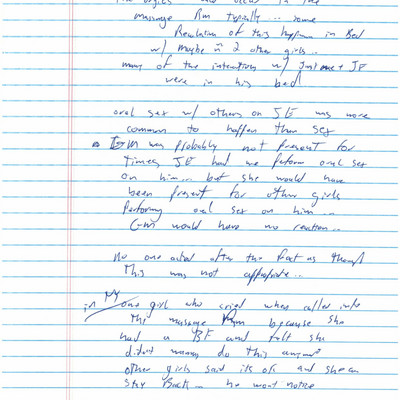 the orgies occur in the
massage Rm typically... some
Revelation of this happen in Bed
w/ maybe 2 other girls..
many of the interactions w/ Just me + JE
were in his bed
oral sex w/ others on JE was more
common to happen then sex
GM was probably not present for
times JE had me perform oral sex
on him... but she would have
been present for other girls
performing oral sex on him...
GM would have no reaction...
No one acted after the fact as though
this was not appropriate...
in NY one girl who cried when called into
the massage Rm because she
had a BF and felt she
didn't wanna do this anymore
other girls said its ok and she can
stay Back... he wont notice